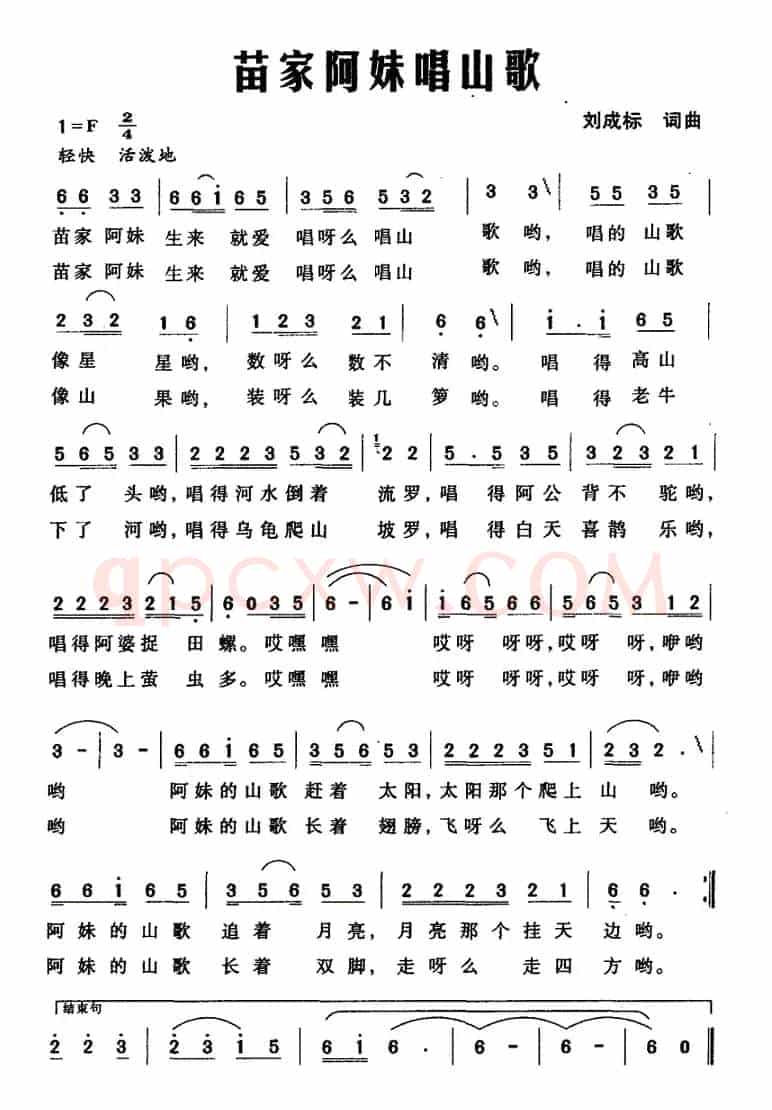 苗家阿妹唱山歌
1=F 2/4
刘成标 词曲
轻快 活泼地
6 6 3 3 | 6 6 i 6 5 | 3 5 6 5 3 2 | 3 3 \ | 5 5 3 5 |
苗家 阿妹 生来 就爱 唱呀么 唱山 歌 哟, 唱的 山歌
苗家 阿妹 生来 就爱 唱呀么 唱山 歌 哟, 唱的 山歌
2 3 2 1 6 | 1 2 3 2 1 | 6 6 \ | i . i 6 5 |
像星 星哟, 数呀么 数不 清 哟。 唱 得 高山
像山 果哟, 装呀么 装几 箩 哟。 唱 得 老牛
5 6 5 3 3 | 2 2 2 3 5 3 2 | i 2 2 | 5 . 5 3 5 | 3 2 3 2 1 |
低了 头哟, 唱得河水倒着 流罗, 唱 得阿公 背不 驼哟,
下了 河哟, 唱得乌龟爬山 坡罗, 唱 得白天 喜鹊 乐哟,
qpcxw.com
2 2 2 3 2 1 5 | 6 0 3 5 | 6 - | 6 i | i 6 5 6 6 | 5 6 5 3 1 2 |
唱得阿婆捉 田 螺。哎嘿嘿 哎呀 呀呀, 哎呀 呀, 咿哟
唱得晚上萤 虫多。哎嘿嘿 哎呀 呀呀, 哎呀 呀, 咿哟
3 - | 3 - | 6 6 i 6 5 | 3 5 6 5 3 | 2 2 2 3 5 1 | 2 3 2 . \ |
哟 阿妹的山歌 赶着 太阳, 太阳那个爬上 山 哟。
哟 阿妹的山歌 长着 翅膀, 飞呀么 飞上天 哟。
6 6 i 6 5 | 3 5 6 5 3 | 2 2 2 3 2 1 | 6 6 . :||
阿妹的山歌 追着 月亮, 月亮那个挂天 边哟。
阿妹的山歌 长着 双脚, 走呀么 走四 方哟。
结束句
2 2 3 | 2 3 i 5 | 6 i 6 . | 6 - | 6 - | 6 0 ||